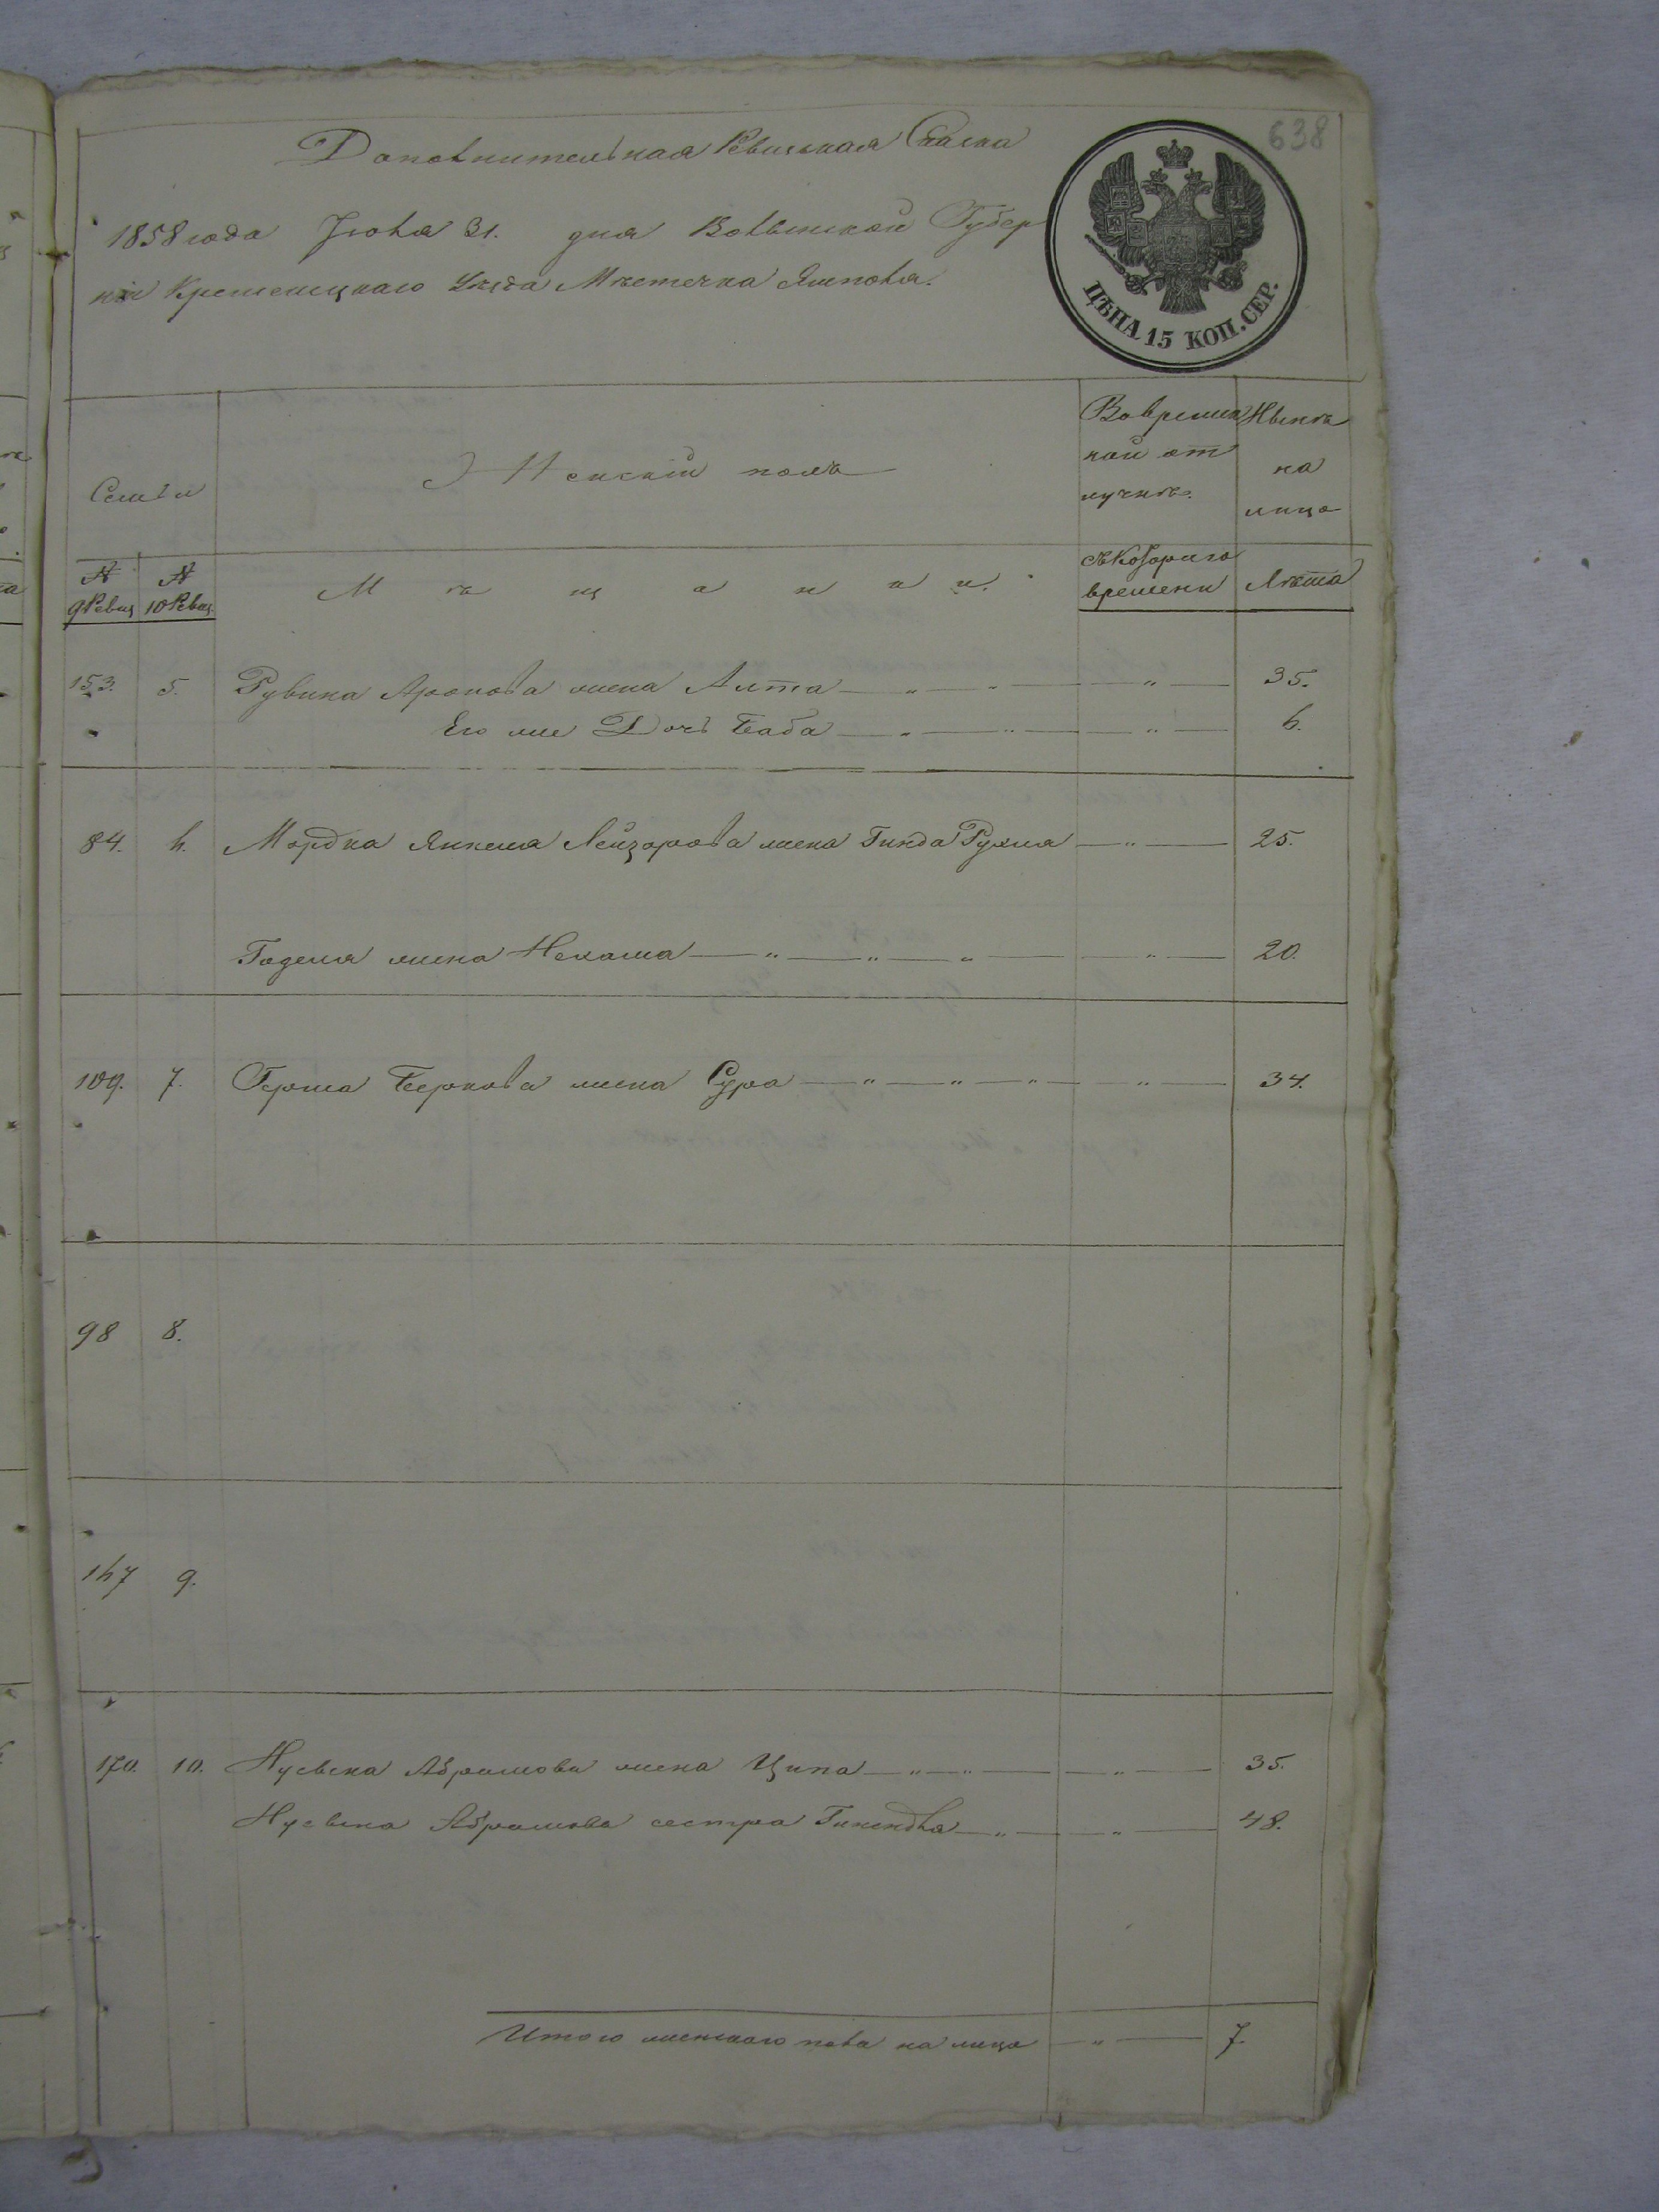 638
Дополнительная Ревизская Сказка
1858 года Июля 31. дня Волынской Губер
ніи Кременецкаго Уѣзда Мѣстечка Ямполя.
ЦѢНА 15 КОП. СЕР.
Семьи
Женскій полъ
Во времен
ной от
лучкѣ.
Нынѣ
на
лицо
№ 9 Ревиз
№ 10 Ревиз
Мѣщании.
съ Котораго
времени
Лѣта
153. 5. Рувина Аронова жена Алта — " — " — " — 35.
Его же Дочь Баба — " — " — " — 6.
84. 6. Мордка Янкеля Лейзорова жена Гинда Рухля — " — 25.
Годеля жена Нехама — " — " — " — " — 20.
109. 7. Герша Беркова жена Сура — " — " — " — " — 34.
98 8.
167 9.
170. 10. Нусьена Абрамова жена Ципа — " — " — " — 35.
Нусьена Абрамова сестра Гинендля — " — " — 48.
Итого женскаго пола на лицо — " — 7.